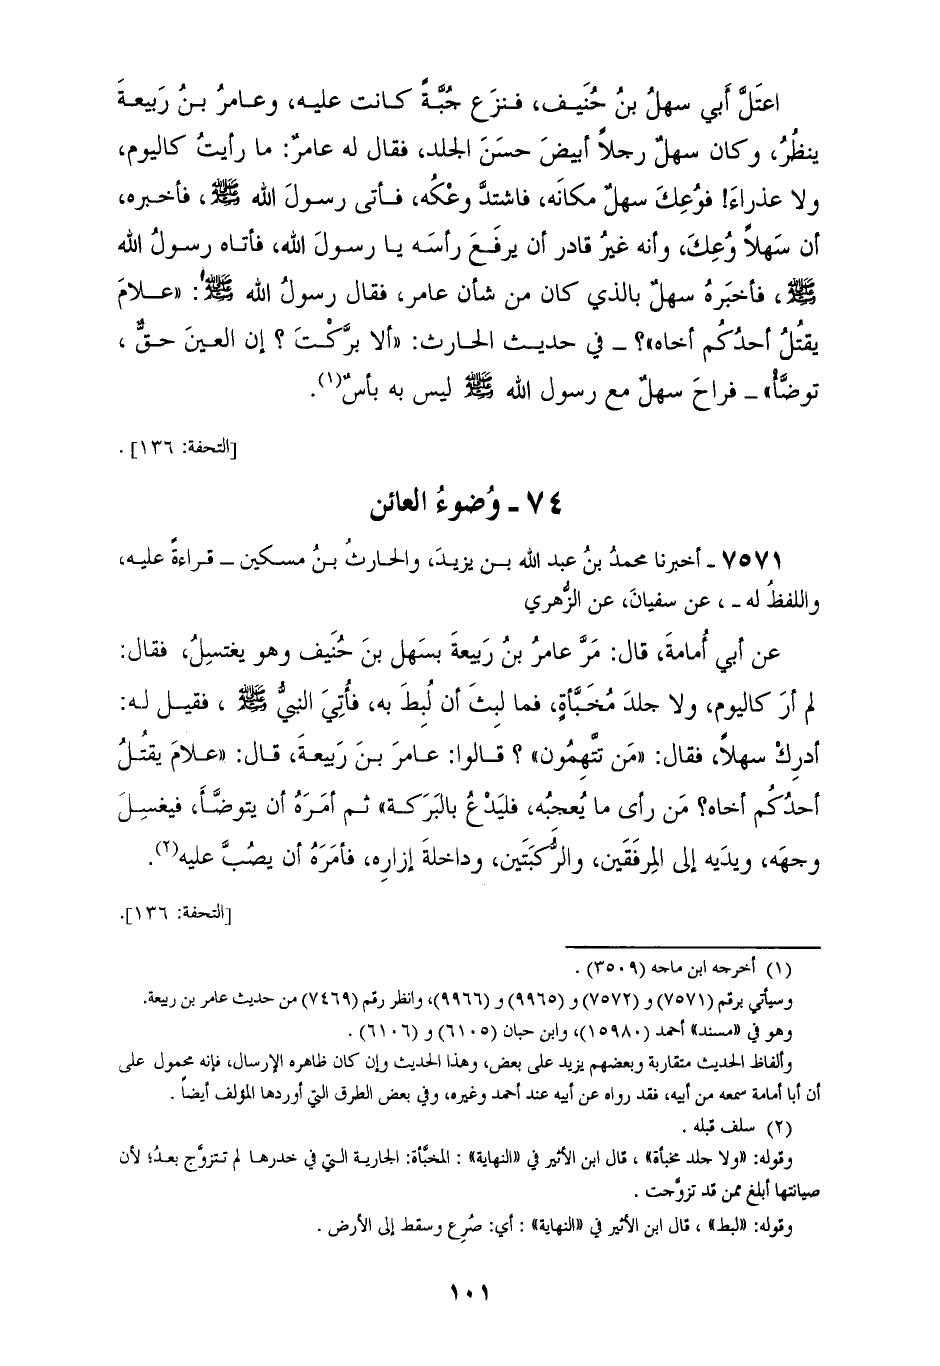 اعتَلَّ أَبي سهلُ بنُ حُنَيف، فنزَع جُبَّةً كانت عليه، وعامرُ بنُ رَبيعةَ
ينظُرُ، وكان سهلٌ رجلاً أبيضَ حسَنَ الجلد، فقال له عامرٌ: ما رأيتُ كاليوم،
ولا عذراءَ! فوُعِكَ سهلٌ مكانَه، فاشتدَّ وعْكُه، فأتى رسولَ الله ﷺ، فأخبره،
أن سَهلاً وُعِكَ، وأنه غيرُ قادر أن يرفَعَ رأسَه يا رسولَ الله، فأتاه رسولُ الله
ﷺ، فأخبَرهُ سهلٌ بالذي كان من شأن عامر، فقال رسولُ الله ﷺ: «علامَ
يقتُلُ أحدُكُم أخاه»؟ ـ في حديث الحارث: «ألا برَّكْتَ ؟ إن العينَ حقٌّ ،
توضَّأْ» ـ فراحَ سهلٌ مع رسول الله ﷺ ليس به بأسٌ(١).
[التحفة: ١٣٦] .
٧٤ ـ وُضوءُ العائن
٧٥٧١ ـ أخبرنا محمدُ بنُ عبد الله بن يزيدَ، والحارثُ بنُ مسكين ـ قراءةً عليه،
واللفظُ له ـ ، عن سفيانَ، عن الزُّهري
عن أبي أُمامةَ، قال: مَرَّ عامرُ بنُ رَبيعةَ بسَهل بنَ حُنَيف وهو يغتسِلُ، فقال:
لم أرَ كاليوم، ولا جلدَ مُخَبَّأةٍ، فما لبِثَ أن لُبِطَ به، فأُتِيَ النبيُّ ﷺ ، فقيل له:
أدرِكْ سهلاً، فقال: «مَن تتَّهِمُون» ؟ قالوا: عامرَ بنَ رَبيعةَ، قال: «علامَ يقتُلُ
أحدُكُم أخاه؟ مَن رأى ما يُعجبُه، فليَدْعُ بالبَرَكة» ثم أمَرَهُ أن يتوضَّأَ، فيغسِلَ
وجهَه، ويدَيه إلى المِرفَقَين، والرُّكبَتَين، وداخلةَ إزارِه، فأمَرَهُ أن يصُبَّ عليه(٢).
[التحفة: ١٣٦].
(١) أخرجه ابن ماجه (٣٥٠٩) .
وسيأتي برقم (٧٥٧١) و (٧٥٧٢) و (٩٩٦٥) و (٩٩٦٦)، وانظر رقم (٧٤٦٩) من حديث عامر بن ربيعة.
وهو في «مسند» أحمد (١٥٩٨٠)، وابن حبان (٦١٠٥) و (٦١٠٦) .
وألفاظ الحديث متقاربة وبعضهم يزيد على بعض، وهذا الحديث وإن كان ظاهره الإرسال، فإنه محمول على
أن أبا أمامة سمعه من أبيه، فقد رواه عن أبيه عند أحمد وغيره، وفي بعض الطرق التي أوردها المؤلف أيضاً .
(٢) سلف قبله .
وقوله: «ولا جلد مخبأة» ، قال ابن الأثير في «النهاية» : المخبَّأة: الجارية التي في خدرها لم تتزوَّج بعدُ؛ لأن
صيانتها أبلغ ممن قد تزوَّجت .
وقوله: «لبط» ، قال ابن الأثير في «النهاية» : أي: صُرِع وسقط إلى الأرض .
١٠١